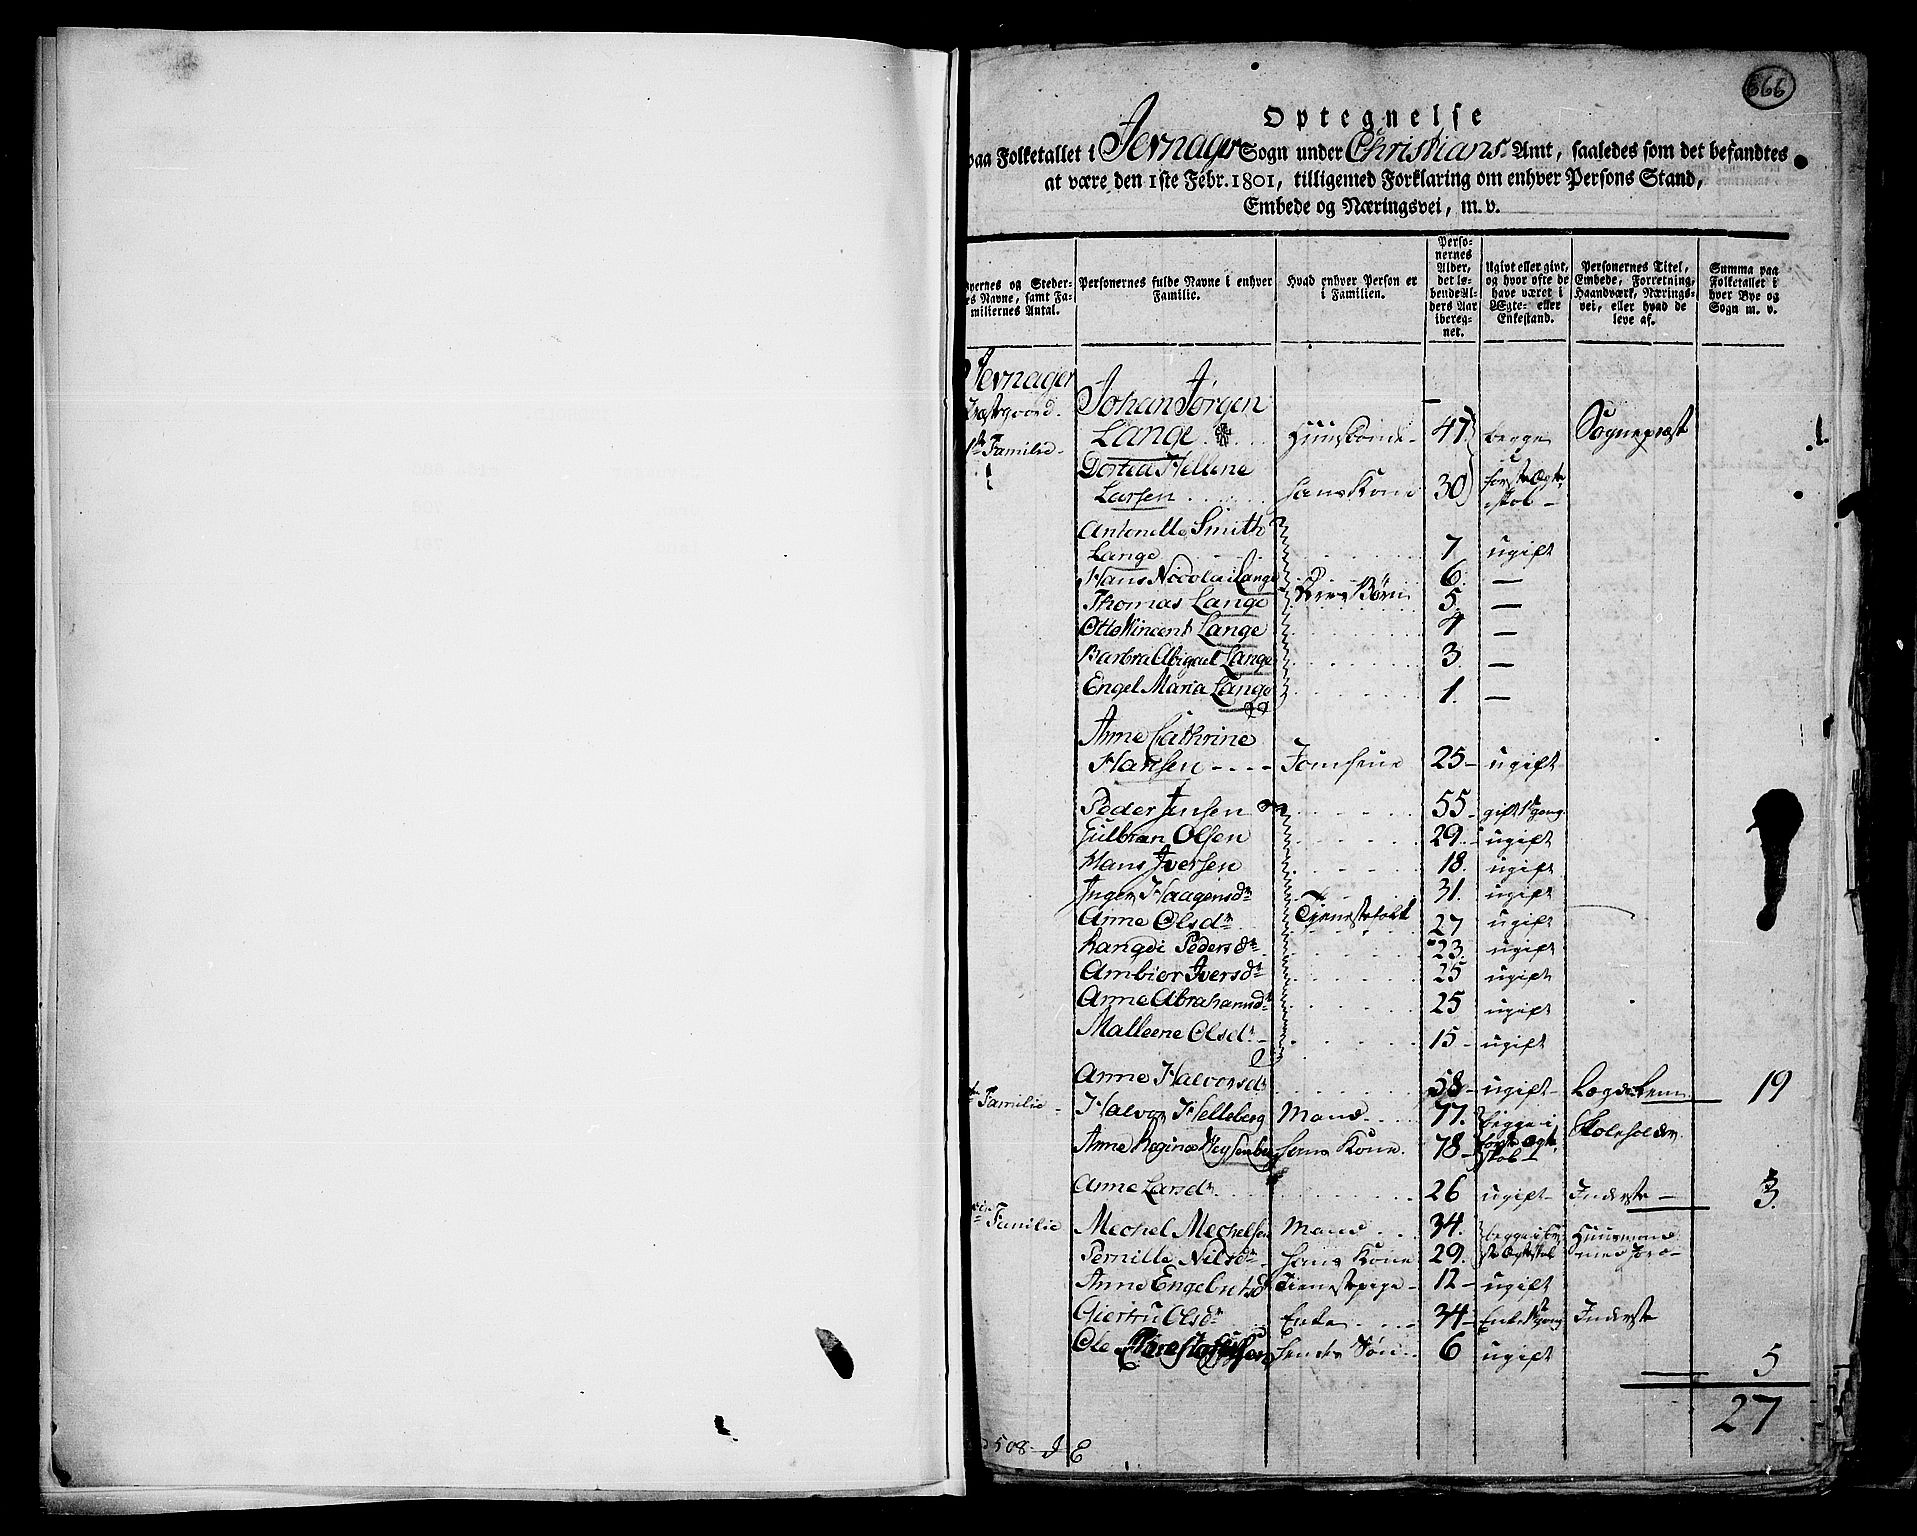 666
Optegnelse
paa Folketallet i Jevnager Sogn under Christians Amt, saaledes som det befandtes
at være den 1ste Febr. 1801, tilligemed Forklaring om enhver Persons Stand,
Embede og Næringsvei, m. v.
Byernes og Steder-
nes Navne, samt Fa-
miliernes Antal.
Personernes fulde Navne i enhver
Familie.
Hvad enhver Person er
i Familien.
Perso-
nernes
Alder,
det lø-
bende Al-
ders Aar
ibereg-
net.
Ugivt eller givt,
og hvor ofte de
have været i
Ægte- eller
Enkestand.
Personernes Titel,
Embede, Forretning,
Haandværk, Nærings-
vei, eller hvad de
leve af.
Summa paa
Folketallet i
hver Bye og
Sogn m. v.
Jevnager
Præstegaard.
1te Familie
Johan Jørgen
Lange Huusbonde 47 begge Sognepræst
i
Dortea Hellene første Ægte-
Larsen hans Kone 30 skab
Antonette Smith
Lange 7 ugift
Hans Nicolai Lange 6 —
Thomas Lange Deres Børn 5 —
Otto Vincent Lange 4 —
Barbra Abigael Lange 3 —
Engel Maria Lange 1 —
Anne Cathrine
Hansen Jomfrue 25 ugift
Peder Jensen 55 gift 1te gang
Gulbran Olsen 29 ugift
Hans Iversen 18 ugift
Inger Haagensdr 31 ugift
Anne Olsdr Tienestefolk 27 ugift
Rangdi Pedersdr 23 ugift
Ambior Iversdr 25 ugift
Anne Abrahamsdr 25 ugift
Malleene Olsdr 15 ugift
Anne Halvorsdr 58 ugift Lægdelem 19
Familie Halvor Helleberg Mand 77 begge i
Skoleholder
Anne Regine hans Kone 78 første Ægte
skab
Anne Larsdr 26 ugift Inderste 3
Familie Mechel Mechelsen Mand 34 begge i før- Huusmand
Pernille Nilsdr hans Kone 29 ste Ægteskab med Jord
Anne Engebretsdr Tienestepige 12 ugift
Giertru Olsdr Enke 34 Enke 1te gang Inderste
Ole hendes Søn 6 ugift 5
27
508